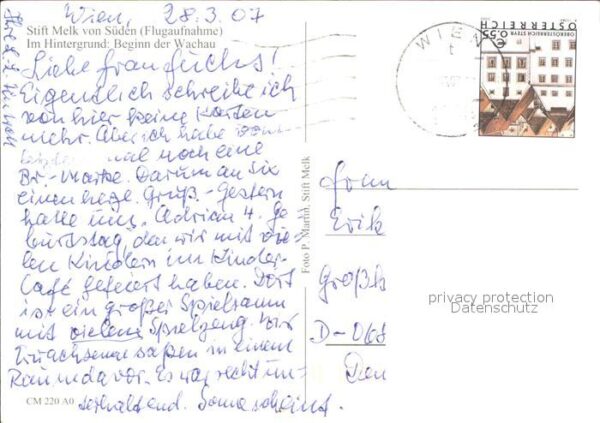 Wien, 28.3.07
Stift Melk von Süden (Flugaufnahme)
Im Hintergrund: Beginn der Wachau
Liebe Frau Fuchs!
Eigentlich schreibe ich
von hier keine Karten
mehr. Aber ich habe vom
letzten mal noch eine
Br.-Marke. Darum an Sie
einen herzl. Gruß. - Gestern
hatte uns. Adrian 4. Ge-
burtstag, den wir mit vie-
len Kindern im Kinder-
Café gefeiert haben. Dort
ist ein großer Spielraum
mit vielem Spielzeug. Wir
Erwachsene saßen in einem
Raum davor. Es war recht un-
terhaltend. Sonne scheint.
CM 220 A0
Foto P. Martin, Stift Melk
WIEN
t
€0,55
ÖSTERREICH
OBERÖSTERREICH STEYR
Frau
Erik
Großk
D-068
privacy protection
Datenschutz